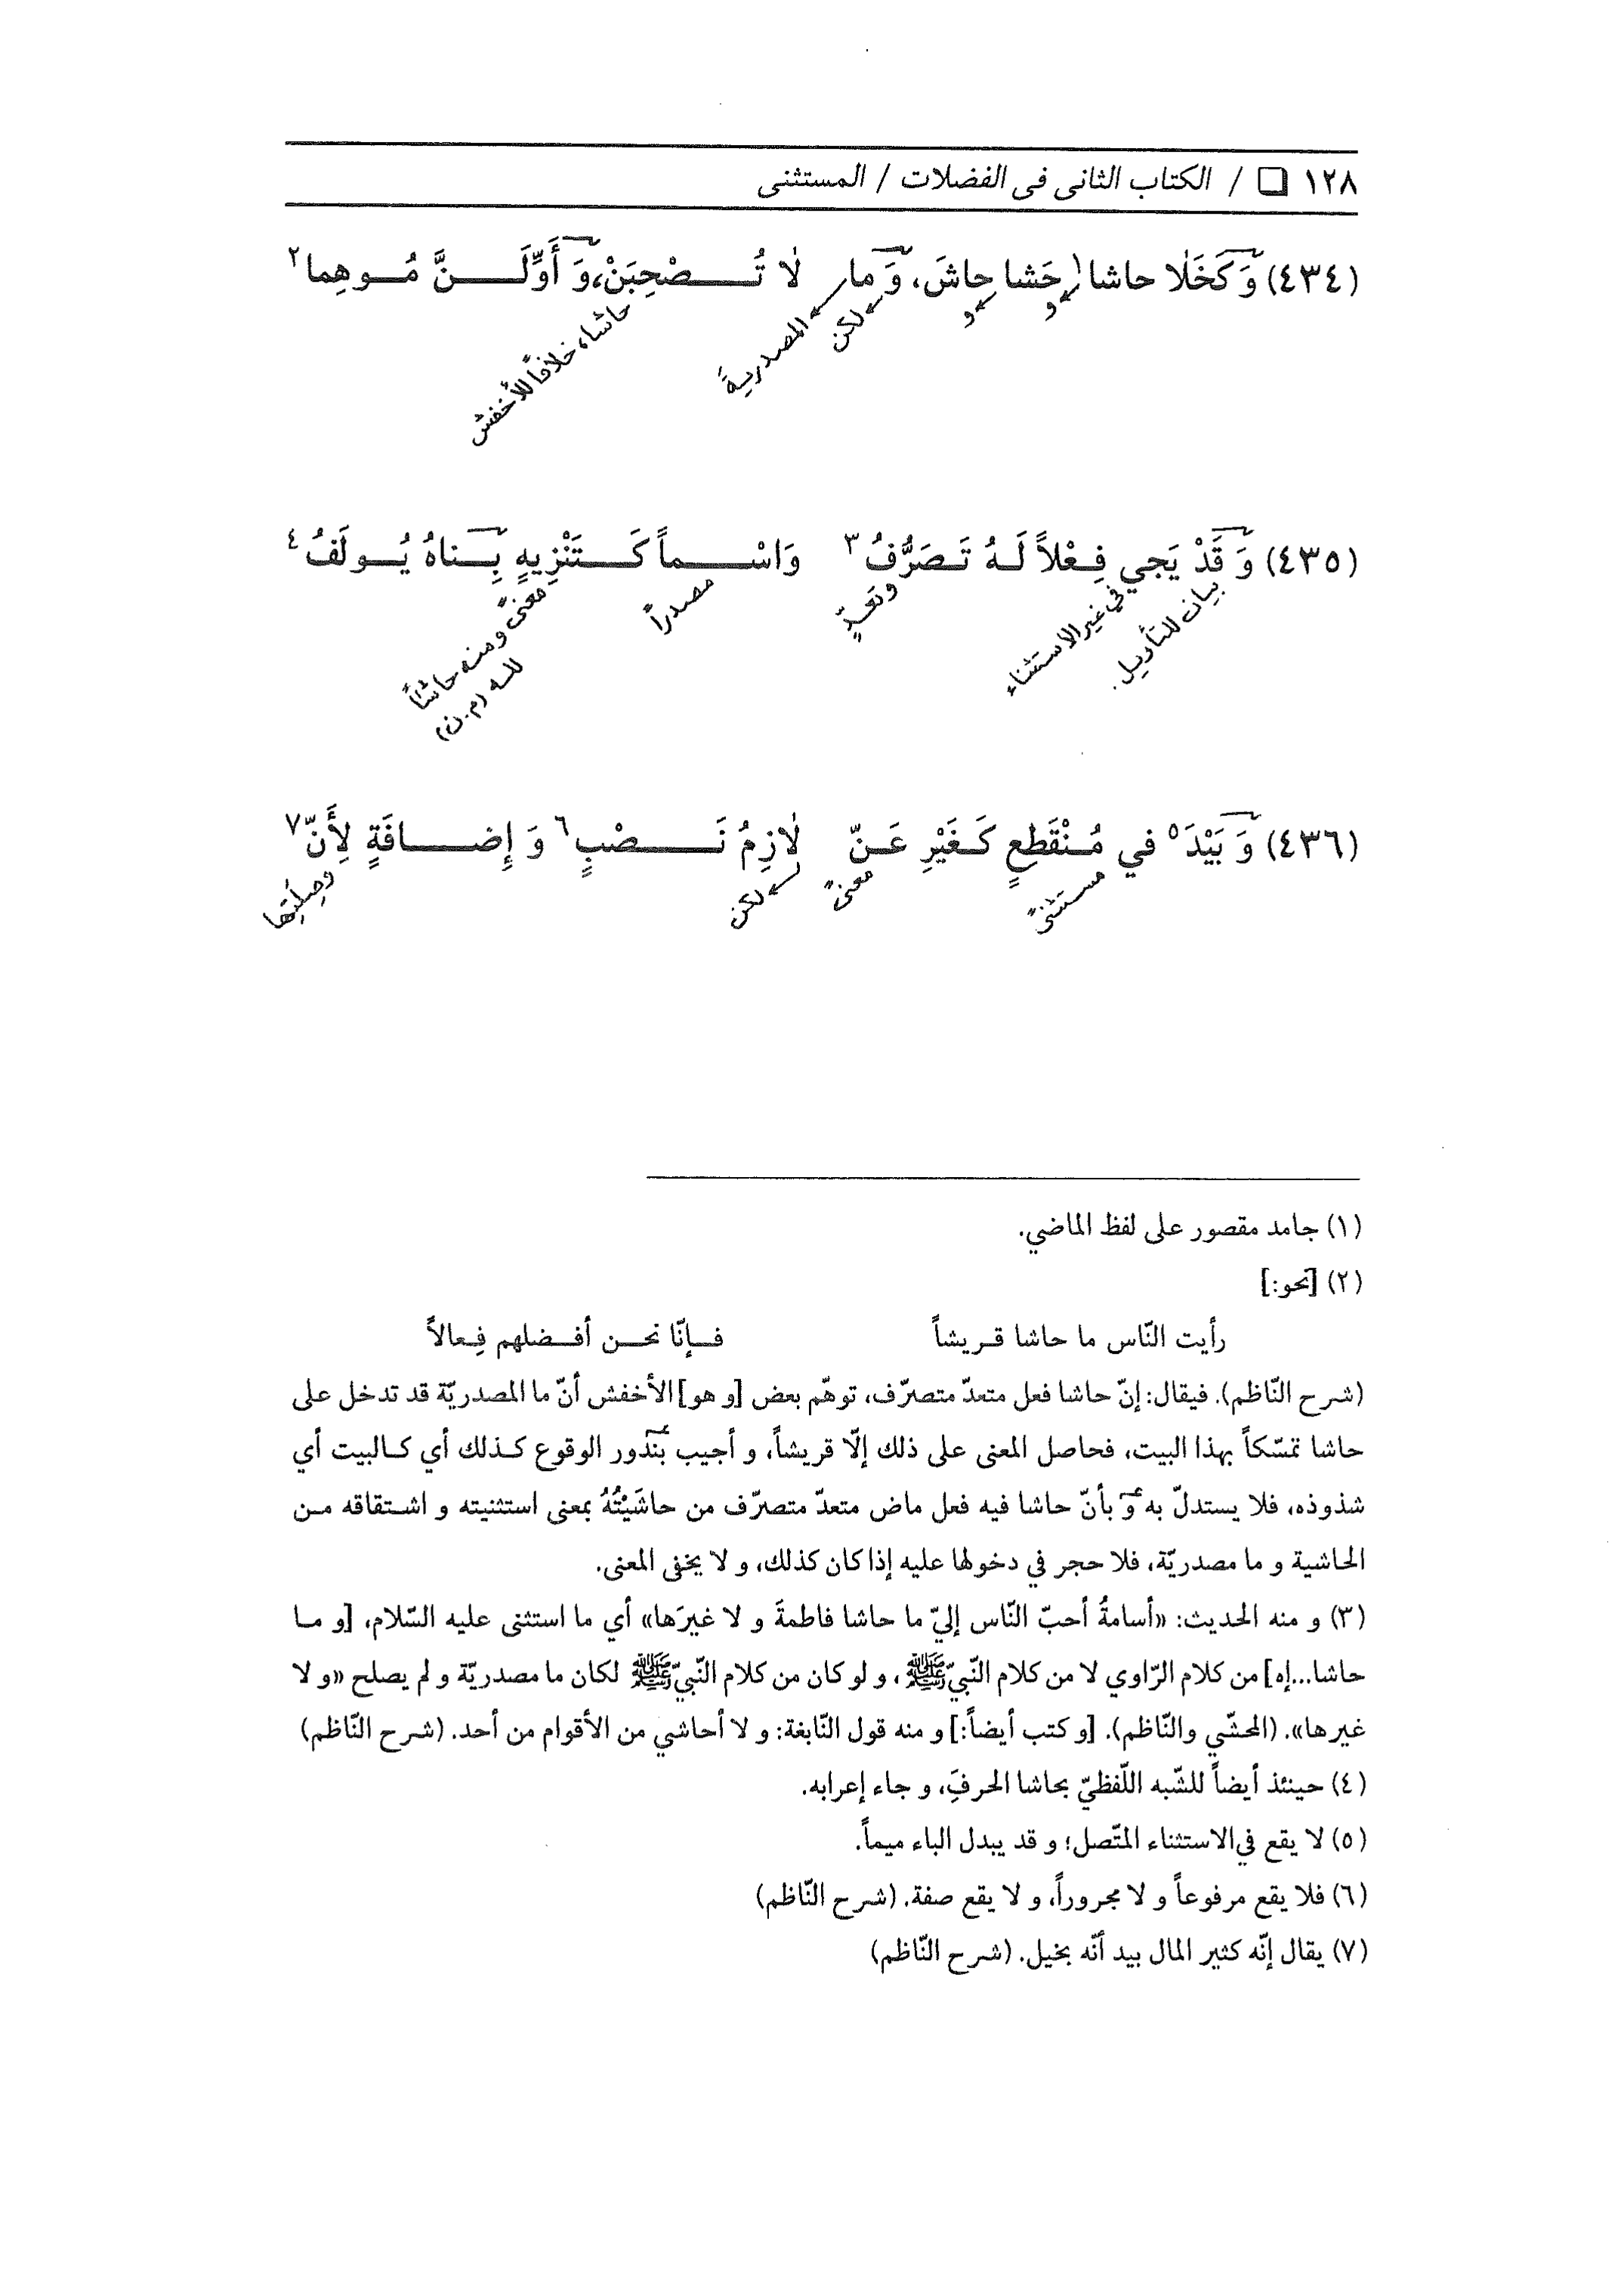 ١٢٨ ❏ / الكتاب الثانى فى الفضلات / المستثنى
(٤٣٤) وَ كَخَلٰا حاشا١ حَشا حاشَ، وَ ما لٰا تُصْحِبَنْ، وَ أَوِّلَنَّ مُوهِما٢
و
و
لكن
المصدريةَ
حاشا، خلافاً للأخفش
(٤٣٥) وَ قَدْ يَجي فِعْلاً لَهُ تَصَرُّفُ٣ وَاسْماً كَتَنْزِيهٍ بِناهُ يُولَفُ٤
بيان للتأويل.
في غير الاستثناء
وتَعَدٍّ
مصدراً
معنىً ومنه حاشاً
لله (م.ن)
(٤٣٦) وَ بَيْدَ٥ في مُنْقَطِعٍ كَغَيْرِ عَنّ لٰازِمُ نَصْبٍ٦ وَ إِضافَةٍ لِأَنّ٧
مستثنىً
معنىً
لكن
وصِلَتِها
(١) جامد مقصور على لفظ الماضي.
(٢) [نحو:]
رأيت النّاس ما حاشا قريشاً فإنّا نحن أفضلهم فِعالاً
(شرح النّاظم). فيقال: إنّ حاشا فعل متعدّ متصرّف، توهّم بعض [و هو] الأخفش أنّ ما المصدريّة قد تدخل على
حاشا تمسّكاً بهذا البيت، فحاصل المعنى على ذلك إلّا قريشاً، و أجيب بندور الوقوع كذلك أي كالبيت أي
شذوذه، فلا يستدلّ به و بأنّ حاشا فيه فعل ماض متعدّ متصرّف من حاشَيْتُهُ بمعنى استثنيته و اشتقاقه من
الحاشية و ما مصدريّة، فلا حجر في دخولها عليه إذا كان كذلك، و لا يخفى المعنى.
(٣) و منه الحديث: «أسامةُ أحبّ النّاس إليّ ما حاشا فاطمةَ و لا غيرَها» أي ما استثنى عليه السّلام، [و ما
حاشا...إه] من كلام الرّاوي لا من كلام النّبيّ ﷺ، و لو كان من كلام النّبيّ ﷺ لكان ما مصدريّة و لم يصلح «و لا
غيرها». (المحشّي والنّاظم). [و كتب أيضاً:] و منه قول النّابغة: و لا أحاشي من الأقوام من أحد. (شرح النّاظم)
(٤) حينئذ أيضاً للشّبه اللّفظيّ بحاشا الحرفِ، و جاء إعرابه.
(٥) لا يقع في الاستثناء المتّصل؛ و قد يبدل الباء ميماً.
(٦) فلا يقع مرفوعاً و لا مجروراً، و لا يقع صفة. (شرح النّاظم)
(٧) يقال إنّه كثير المال بيد أنّه بخيل. (شرح النّاظم)